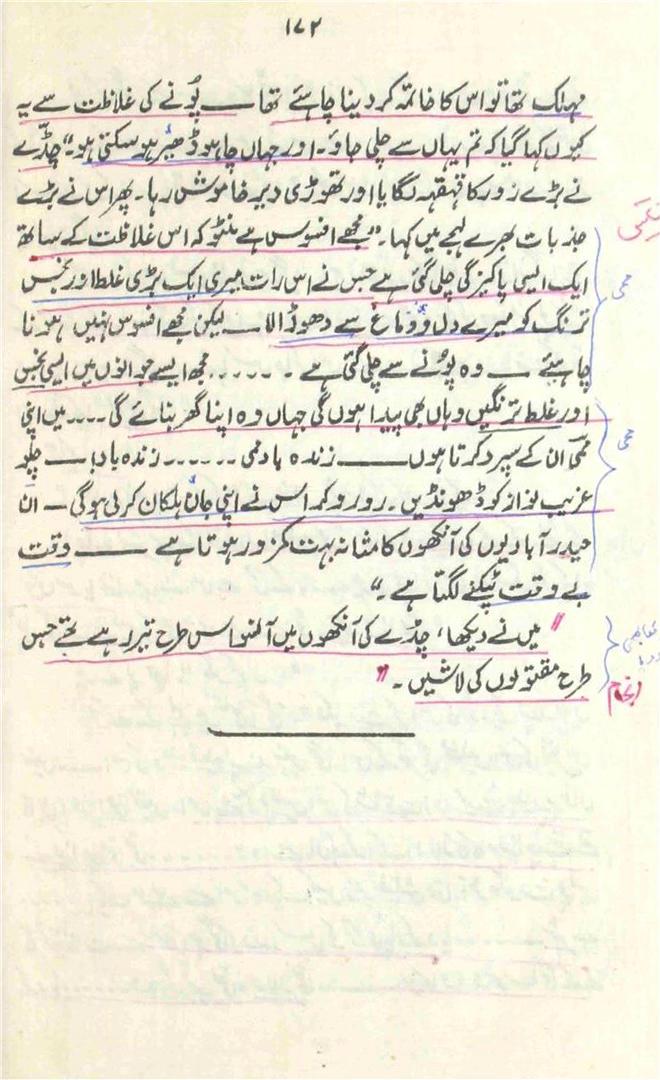 ۱۷۲
مہلک تھا تو اس کا خاتمہ کر دینا چاہئے تھا ــــ پُونے کی غلاظت سے یہ
کیوں کہا گیا کہ تم یہاں سے چلی جاؤ۔ اور جہاں چاہو ڈھیر ہو سکتی ہو۔“ چڈّے
نے بڑے زور کا قہقہہ لگایا اور تھوڑی دیر خاموش رہا۔ پھر اس نے بڑے
جذبات بھرے لہجے میں کہا۔ ”مجھے افسوس ہے منٹو کہ اس غلاظت کے ساتھ
ایک ایسی پاکیزگی چلی گئی ہے جس نے اس رات میری ایک بڑی غلط اور نجس
ترنگ کو میرے دل و دماغ سے دھو ڈالا ــــ لیکن مجھے افسوس نہیں ہونا
چاہیئے ــــ وہ پُونے سے چلی گئی ہے ۔۔۔۔۔۔ مجھ ایسے جوانوں میں ایسی نجس
اور غلط ترنگیں وہاں بھی پیدا ہوں گی جہاں وہ اپنا گھر بنائے گی ۔۔۔۔ میں اپنی
ممّی ان کے سپرد کرتا ہوں ــــــ زندہ باد ممی ۔۔۔۔۔۔ زندہ باد! ــــ چلو
غریب نواز کو ڈھونڈیں۔ رو رو کر اس نے اپنی جان ہلکان کر لی ہو گی ــ ان
حیدرآبادیوں کی آنکھوں کا مثانہ بہت کمزور ہوتا ہے ــــــ وقت
بے وقت ٹپکنے لگتا ہے۔“
”میں نے دیکھا، چڈے کی آنکھوں میں آنسو اس طرح تیر رہے تھے جس
طرح مقتولوں کی لاشیں۔“
ممی
ممی